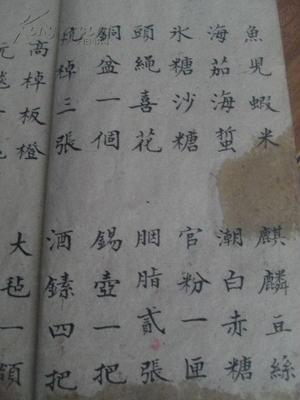 魚兒蝦米
麒麟豆絲
海茄海蜇
潮白赤糖
氷糖沙糖
官粉一匣
頭繩喜花
胭脂貳張
銅盆一個
錫壺一把
桌三張
酒鎍四把
高棹板橙
大毡一
元